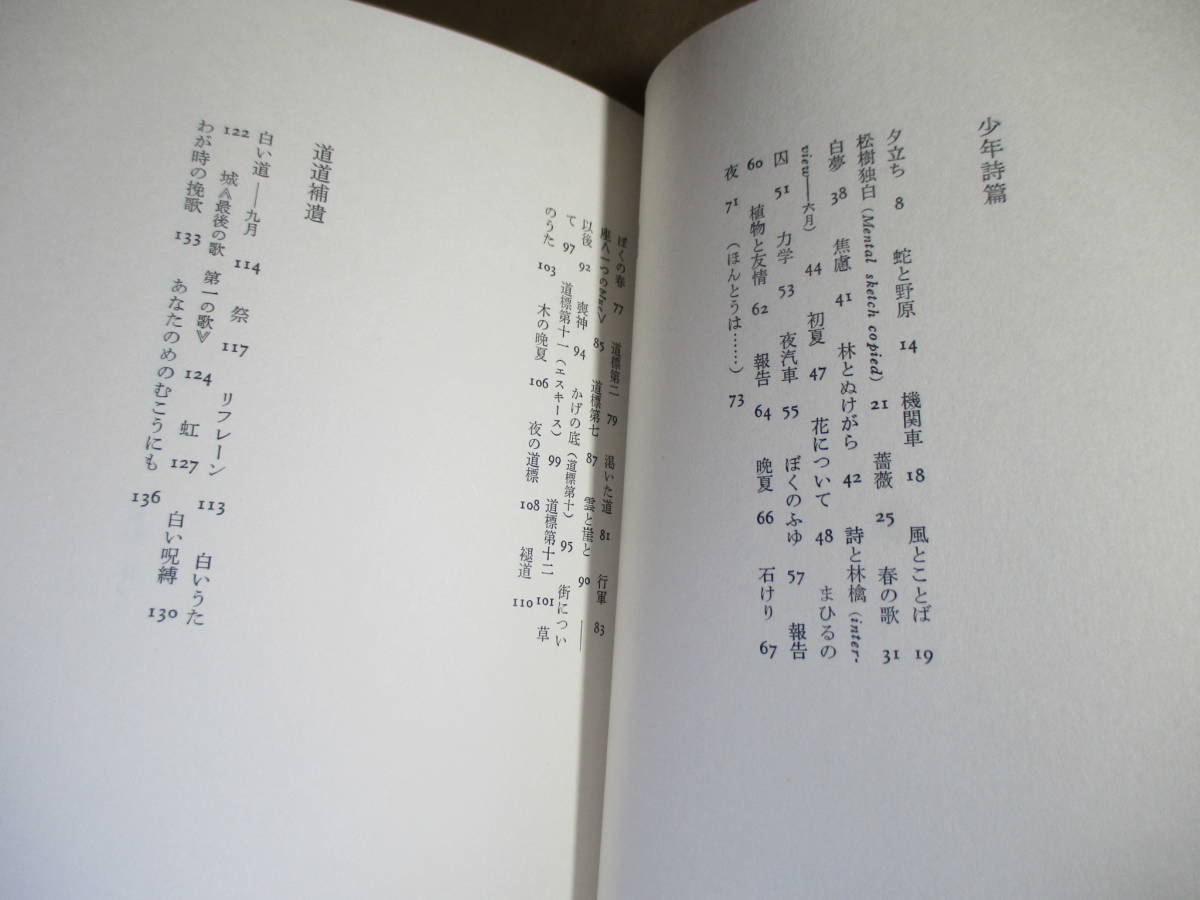 少年詩篇
夕立ち 8 蛇と野原 14 機関車 18 風とことば 19
松樹独白（Mental sketch copied） 21 薔薇 25 春の歌 31
白夢 38 焦慮 41 林とぬけがら 42 詩と林檎（inter-
view——六月） 44 初夏 47 花について 48 まひるの
囚 51 力学 53 夜汽車 55 ぼくのふゆ 57 報告
60 植物と友情 62 報告 64 晩夏 66 石けり 67
夜 71 （ほんとうは……） 73
ぼくの春 77 道標第二 79 渇いた道 81 行軍 83
85 道標第七 87 雲と崖と 90 ——
以後 92 喪神 94 かげの底（道標第十） 95 街につい
て 97 道標第十一（エスキース） 99 道標第十二 101 草
のうた 103 木の晩夏 106 夜の道標 108 褪道 110
道道補遺
リフレーン 113 白いうた
白い道——九月 114 祭 117
122 城≪最後の歌 第一の歌≫ 124 虹 127 白い呪縛 130
わが時の挽歌 133 あなたのめのむこうにも 136